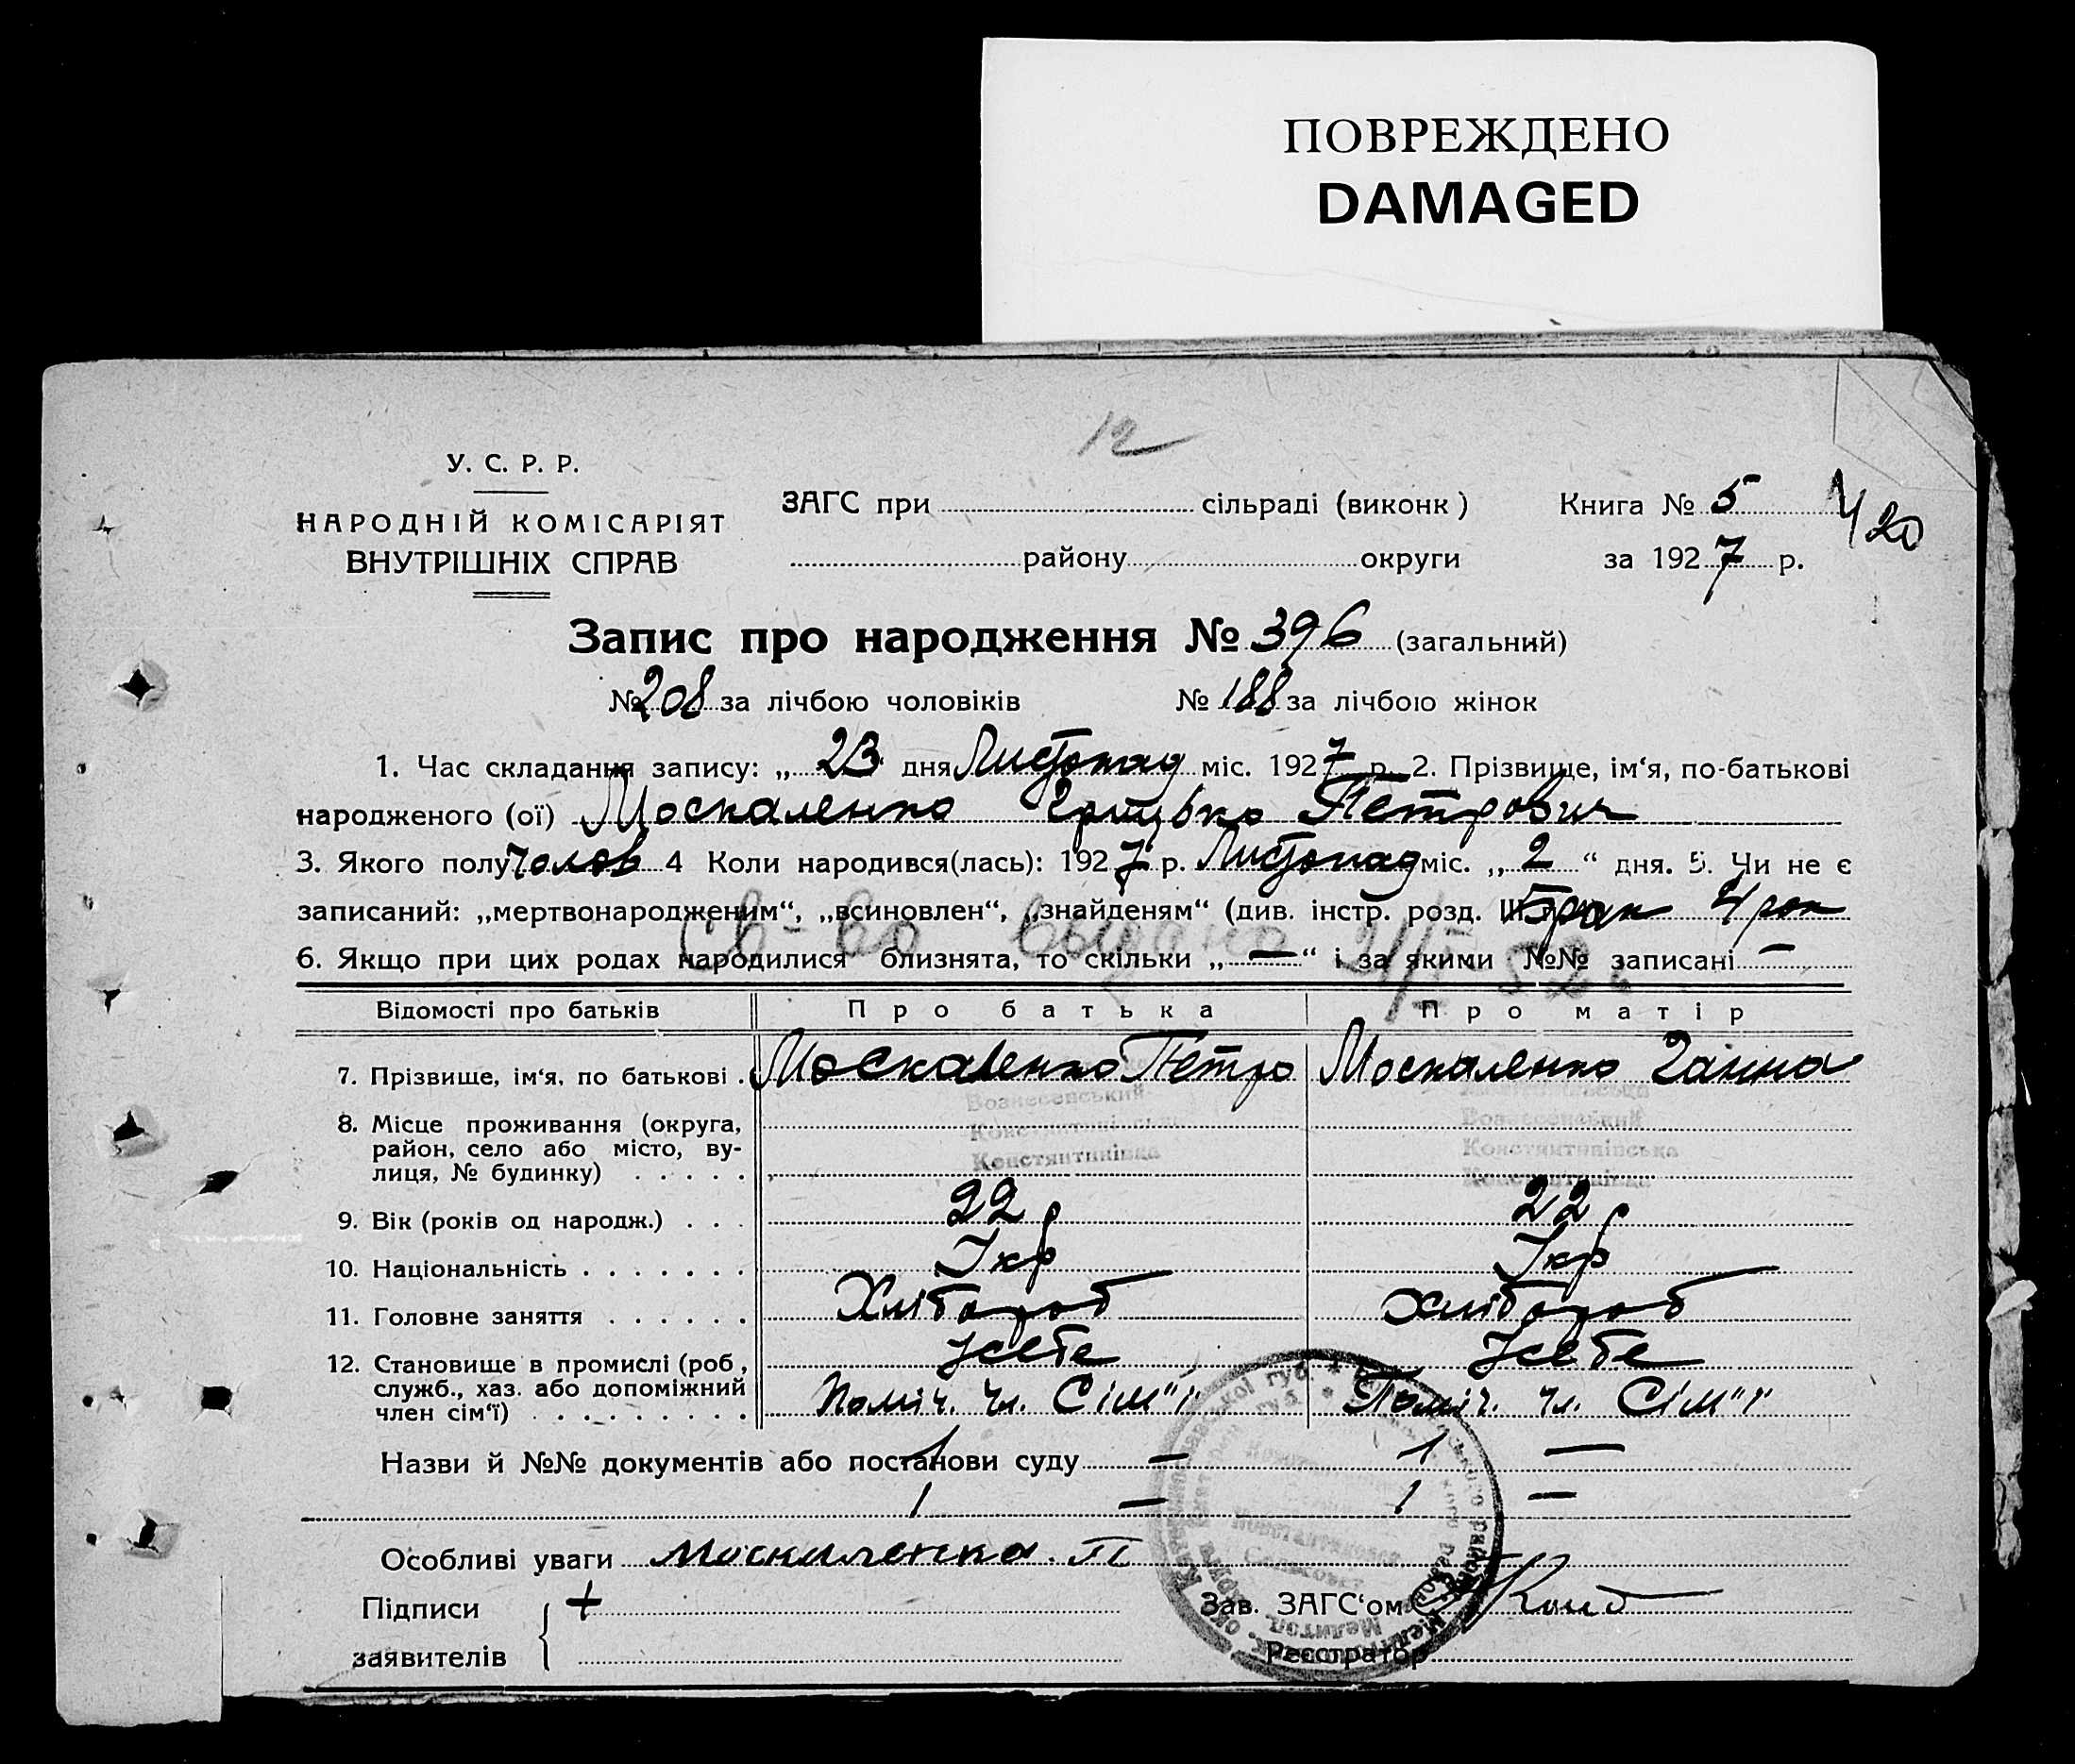 ПОВРЕЖДЕНО
DAMAGED
12
У. С. Р. Р.
НАРОДНІЙ КОМІСАРІЯТ
ВНУТРІШНІХ СПРАВ
ЗАГС при сільраді (виконк)
району округи
Книга № 5
за 1927 р.
420
Запис про народження № 396 (загальний)
№ 208 за лічбою чоловіків № 188 за лічбою жінок
1. Час складання запису: „ 23 дня Листопад міс. 1927 р. 2. Прізвище, ім‘я, по-батькові
народженого (ої) Москаленко Грицько Петрович
3. Якого полу чолов 4 Коли народився(лась): 1927 р. Листопад міс. „ 2 “ дня. 5. Чи не є
записаний: „мертвонародженим“, „всиновлен“, „знайденям“ (див. інстр. розд. III Брак 4 рок
Св-во выдано
6. Якщо при цих родах народилися близнята, то скільки „ — “ і за якими №№ записані —
Відомості про батьків Про батька Про матір
7. Прізвище, ім‘я, по батькові . Москаленко Петро Москаленко Ганна
8. Місце проживання (округа, район, село або місто, вулиця, № будинку) . . . . .
Вознесенський Вознесенський
Константинівська Константинівська
Константинівка Константинівка
9. Вік (років од народж.) . . . 22 р 22 р
10. Національність . . . . . . . Укр Укр
11. Головне заняття . . . . . . Хлібороб Хлібороб
12. Становище в промислі (роб, служб., хаз. або допоміжний член сім‘ї) . . . . . . . . .
У себе У себе
Поміч. чл. Сім"ї Поміч. чл. Сім"ї
Назви й №№ документів або постанови суду — —
— —
Особливі уваги Москаленко. П
Підписи заявителів +
Зав. ЗАГС‘ом
Реєстратор